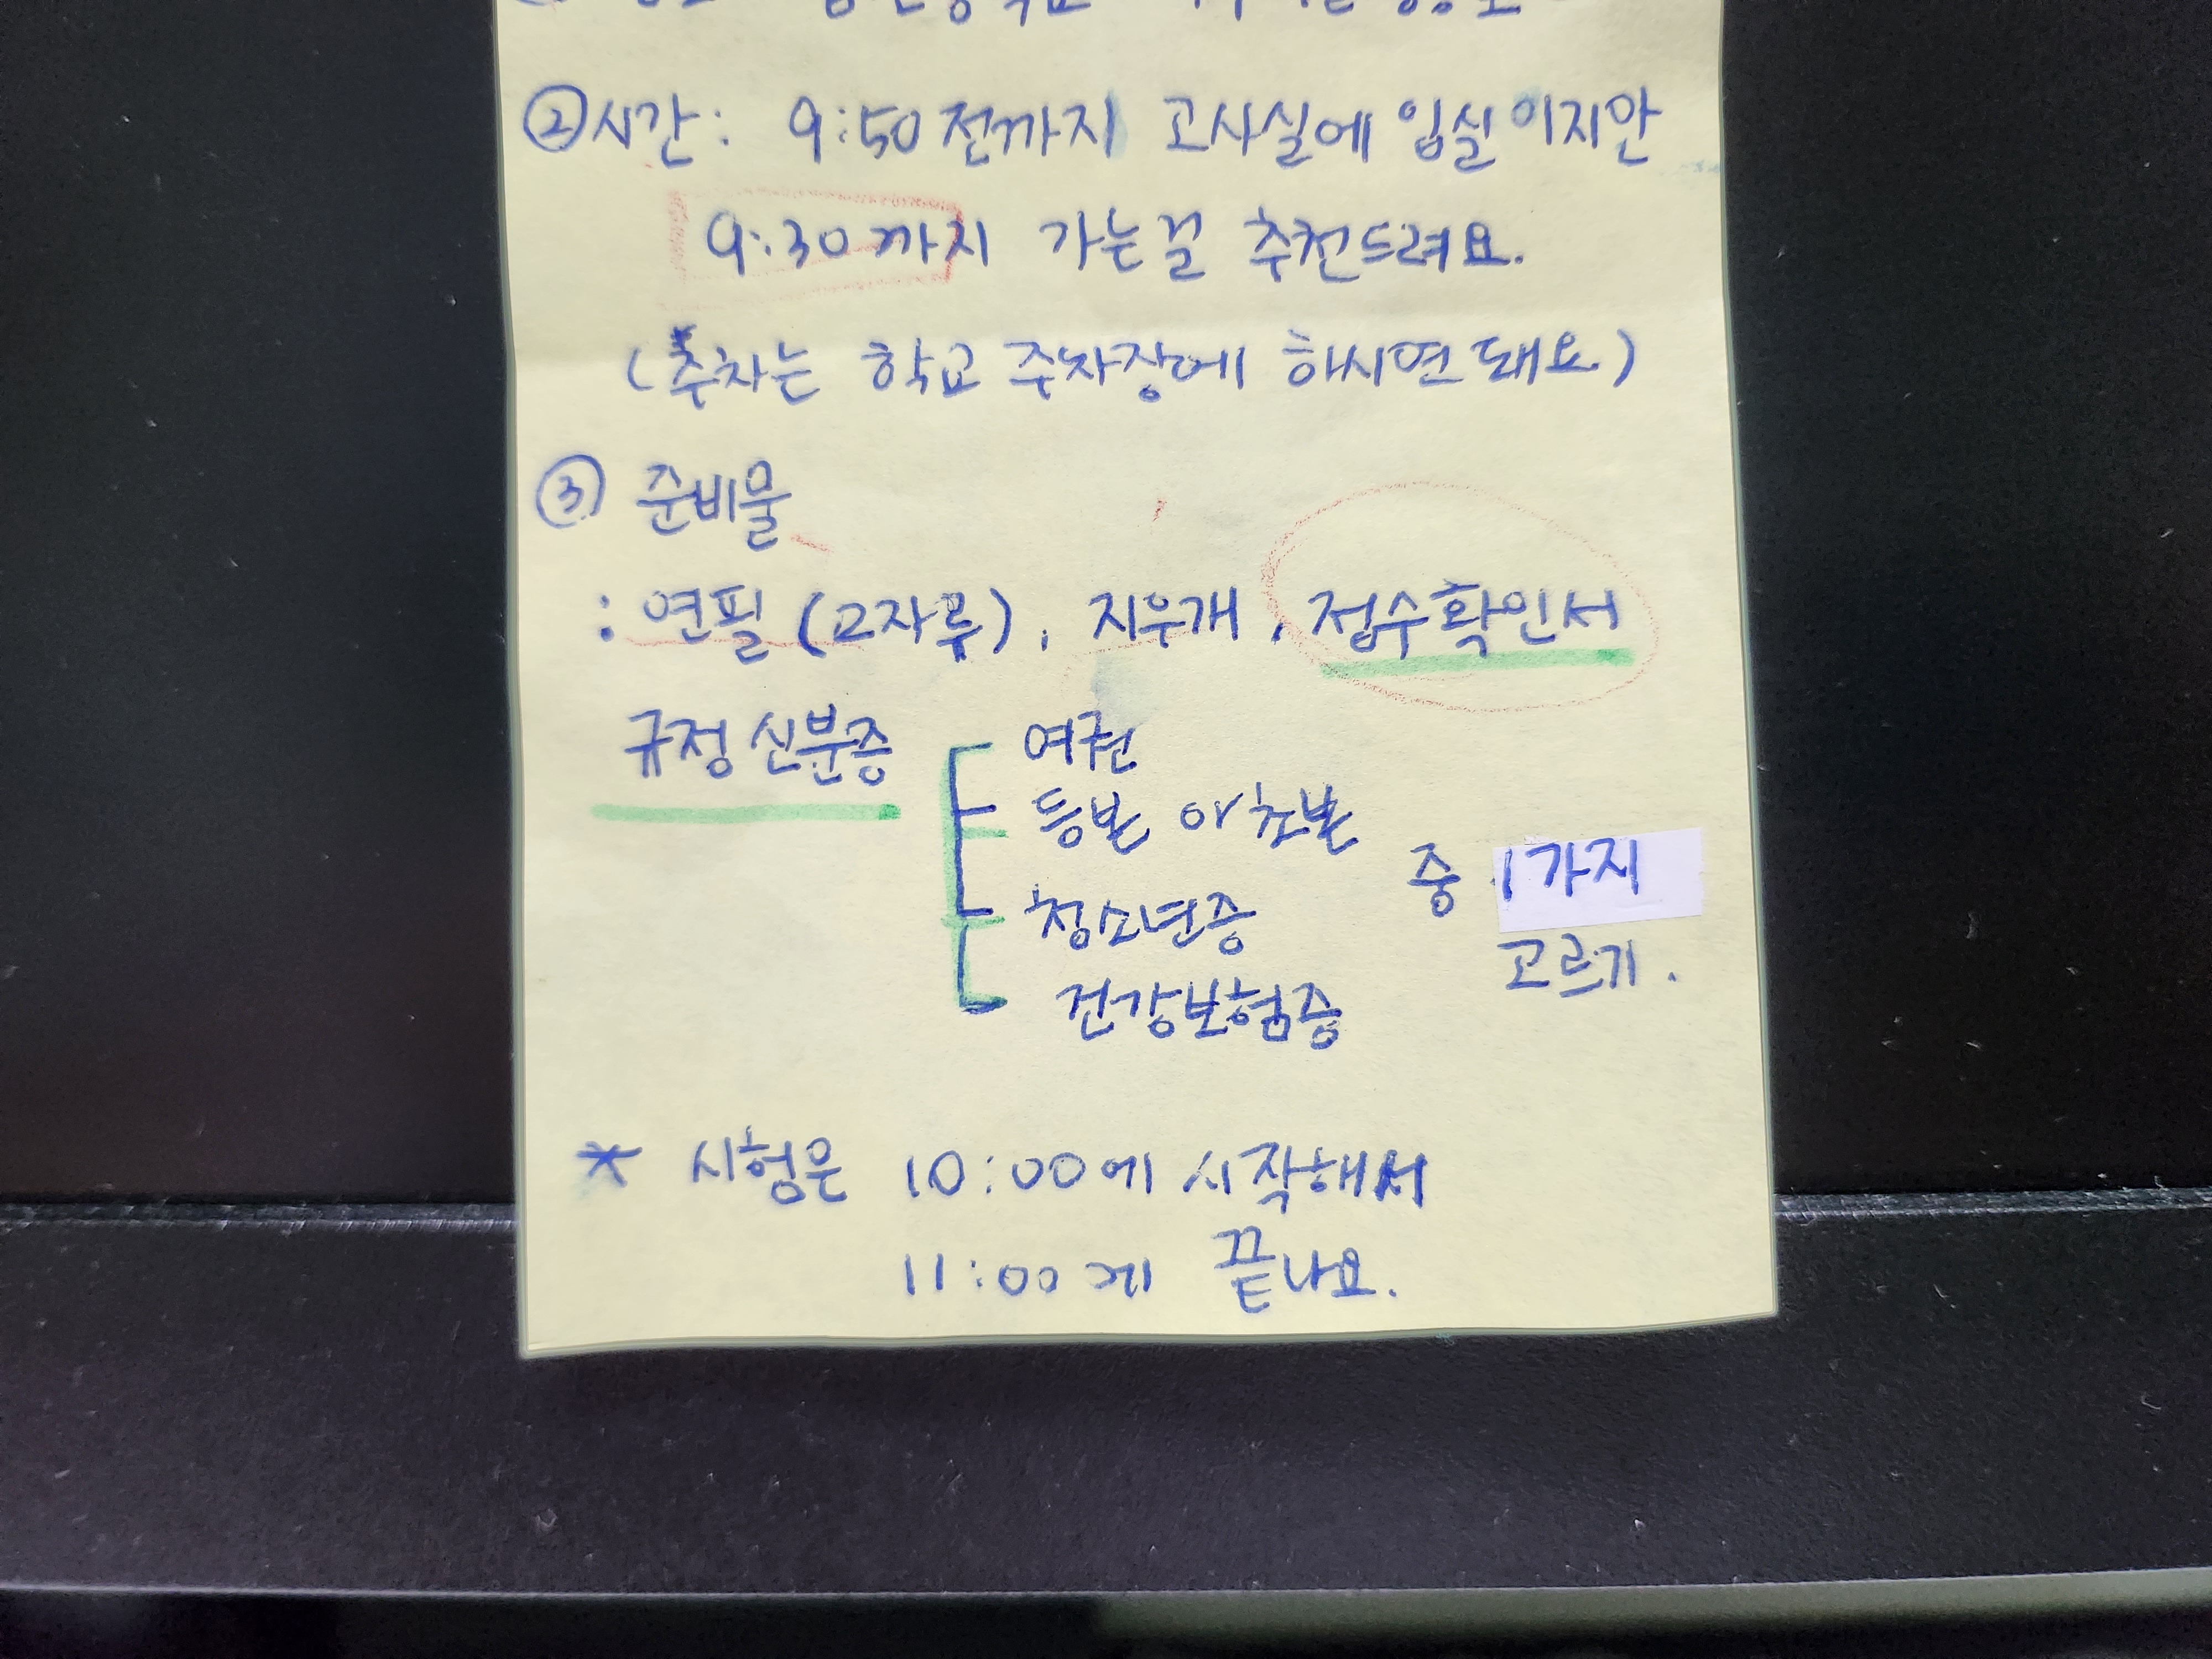 ② 시간: 9:50 전까지 고사실에 입실이지만
9:30까지 가는걸 추천드려요.
(주차는 학교 주차장에 하시면 돼요)
③ 준비물
: 연필 (2자루), 지우개, 접수확인서
규정 신분증
여권
등본 or 초본
청소년증
건강보험증
중 1가지
고르기.
* 시험은 10:00에 시작해서
11:00에 끝나요.